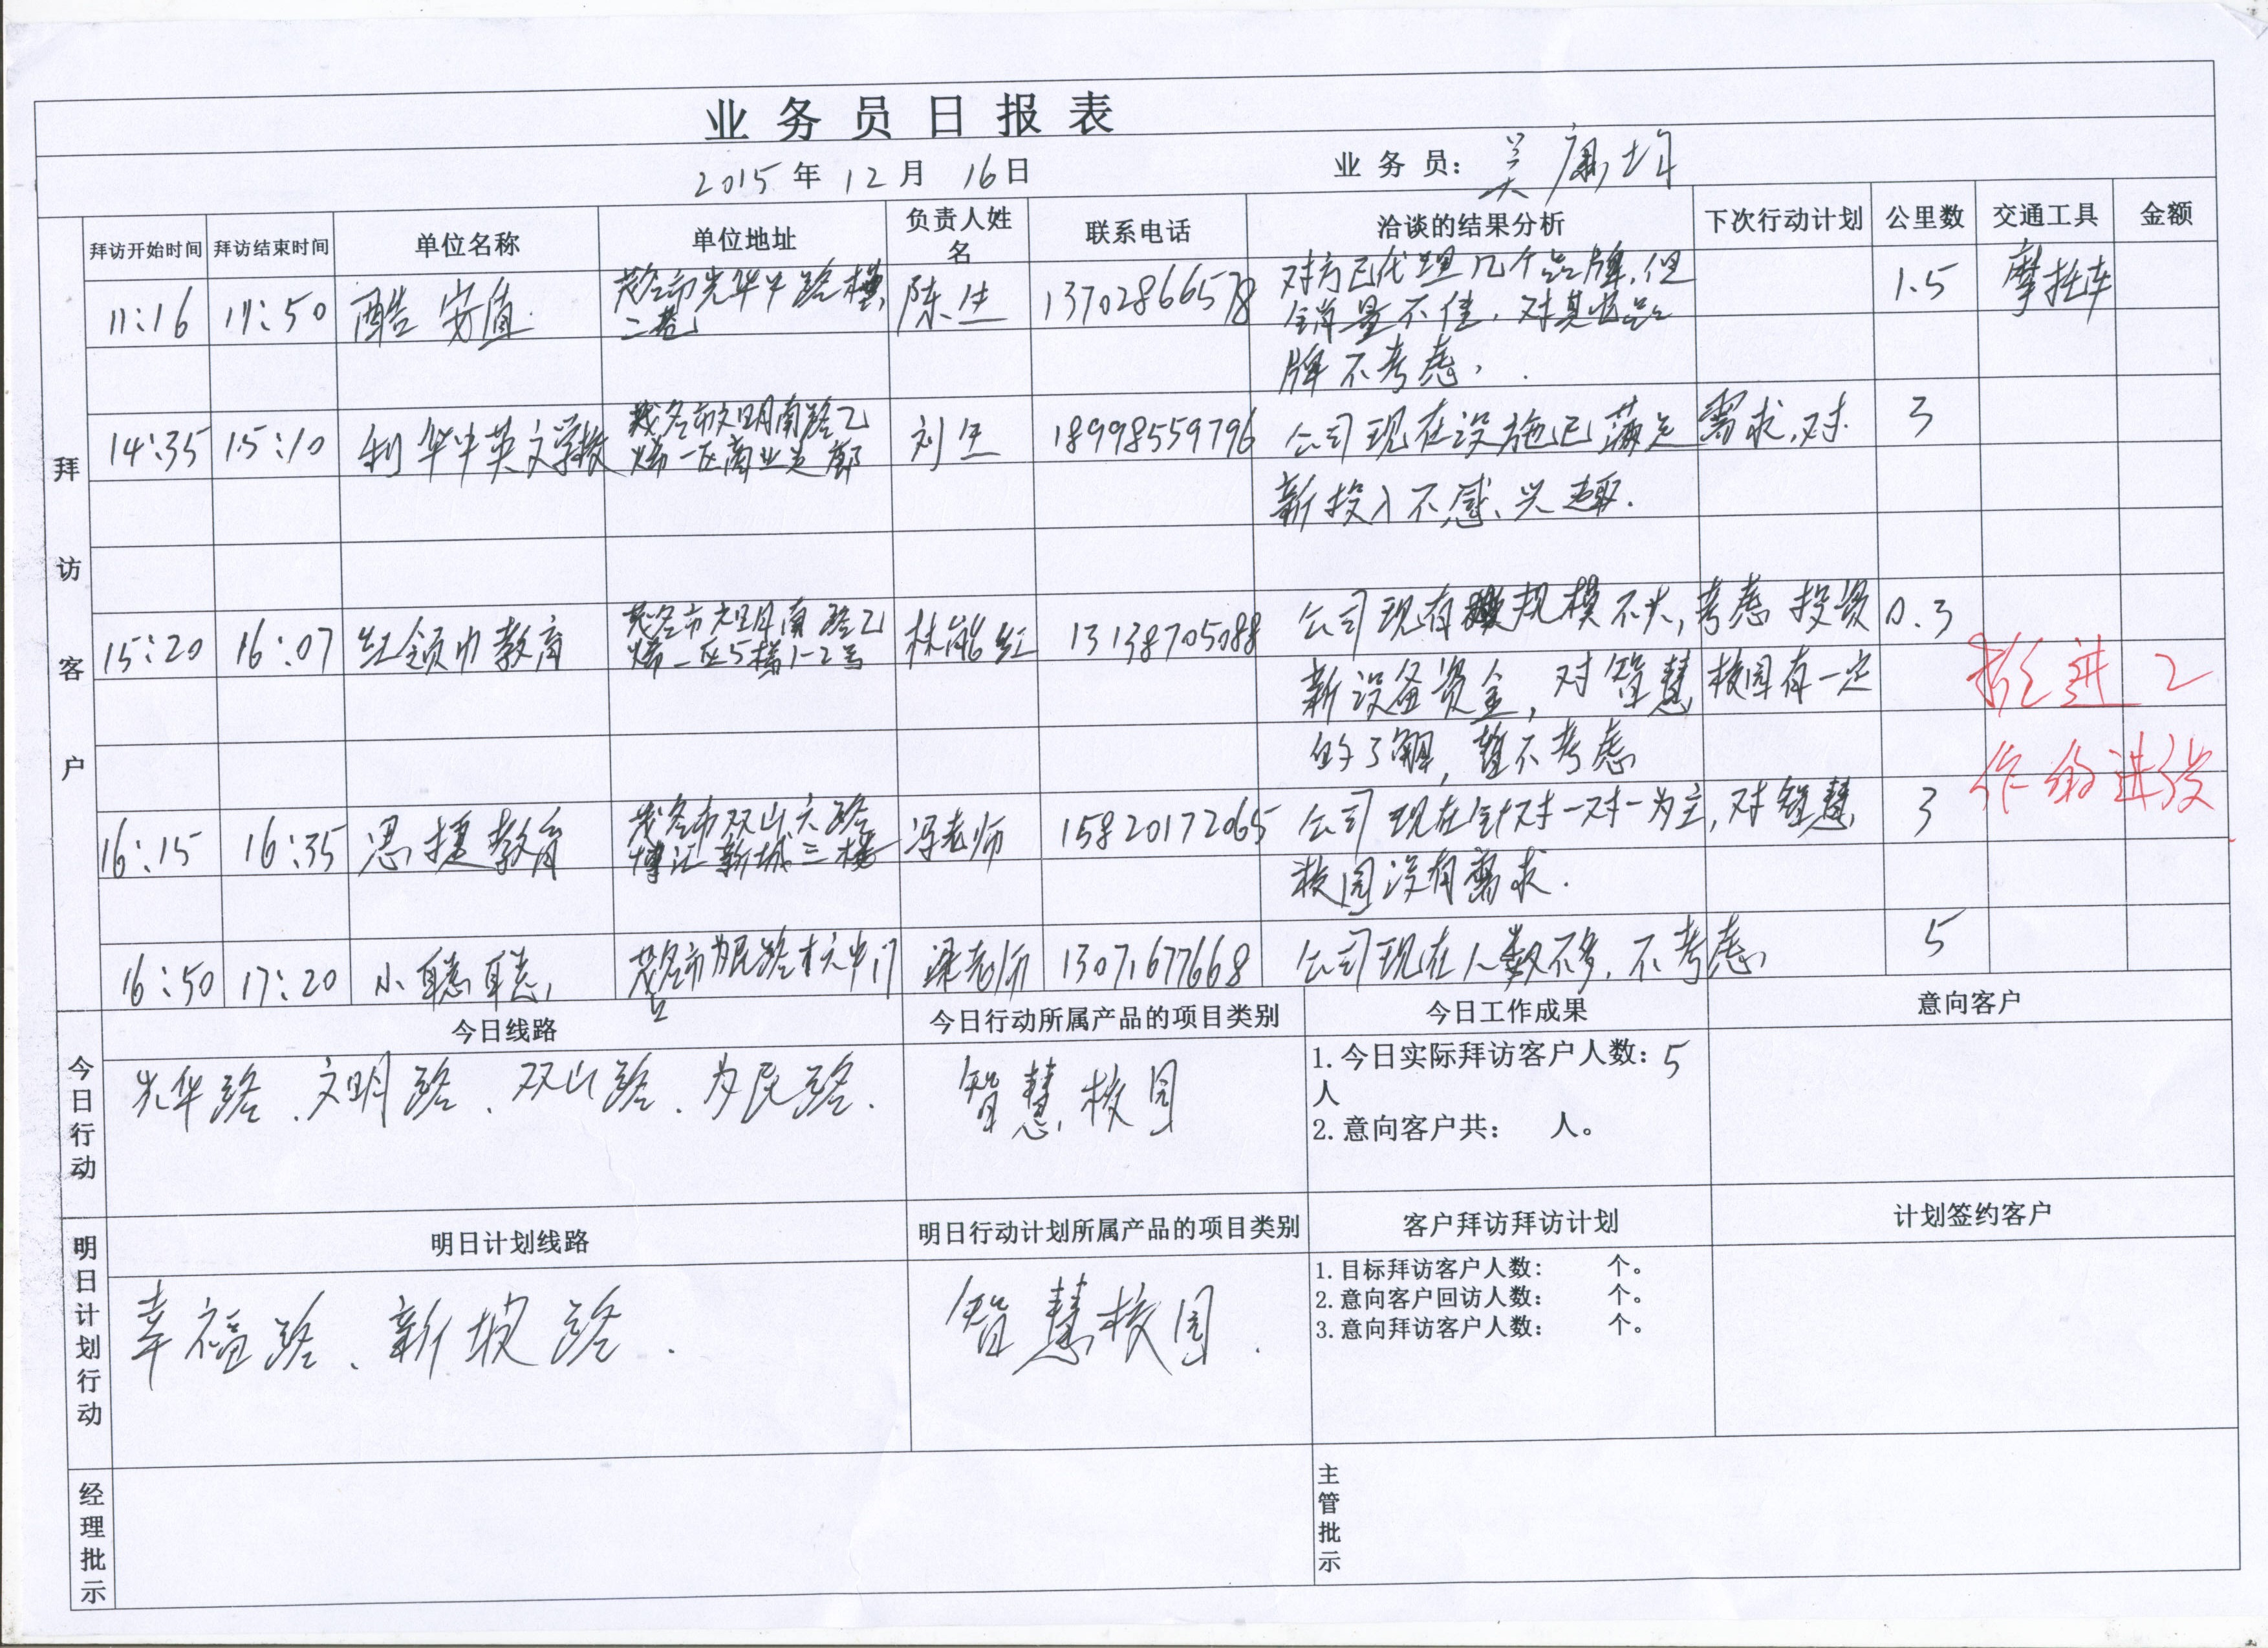 业务员日报表
2015 年 12 月 16 日 业务员: 吴康
拜访客户
拜访开始时间 拜访结束时间 单位名称 单位地址 负责人姓名 联系电话 洽谈的结果分析 下次行动计划 公里数 交通工具 金额
11:16 11:50 酷 茂名市光华中路横 陈生 13702866578 对方已代理几个品牌,但 1.5 摩托车
二巷 销量不佳,对其它品
牌不考虑.
14:35 15:10 利华中英文学校 茂名市文明南路乙 刘生 18998559796 公司现在设施已满足需求,对 3
烯一区商业走廊 新投入不感兴趣.
15:20 16:07 红领巾教育 茂名市文明南路乙 林能红 13138705088 公司现有规模不大,考虑投资 0.3
烯一区5横1-2号 新设备资金,对智慧校园有一定
的了解,暂不考虑
16:15 16:35 思捷教育 茂名市双山六路 冯老师 15820172065 公司现在针对一对一为主,对智慧 3
博汇新城三楼 校园没有需求.
16:50 17:20 小聪聪 茂名市为民路 梁老师 13071677668 公司现在人数不多,不考虑 5
推进工
作的进度
今日行动
今日线路 今日行动所属产品的项目类别 今日工作成果 意向客户
光华路、文明路、双山路、为民路. 智慧校园 1.今日实际拜访客户人数: 5
人
2.意向客户共: 人。
明日计划行动
明日计划线路 明日行动计划所属产品的项目类别 客户拜访拜访计划 计划签约客户
幸福路、新坡路. 智慧校园. 1.目标拜访客户人数: 个。
2.意向客户回访人数: 个。
3.意向拜访客户人数: 个。
经理批示 主管批示